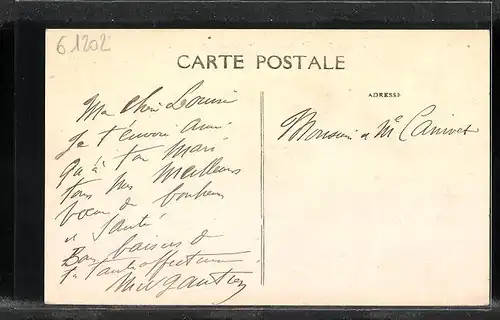 61202
CARTE POSTALE
ADRESSE
Ma Chère Louise
Je t'envoie ainsi
qu'à ton Mari
tous mes meilleurs
vœux de bonheur
et santé
Bons baisers de
ta tante affectueuse
Monsieur et Me Canivet